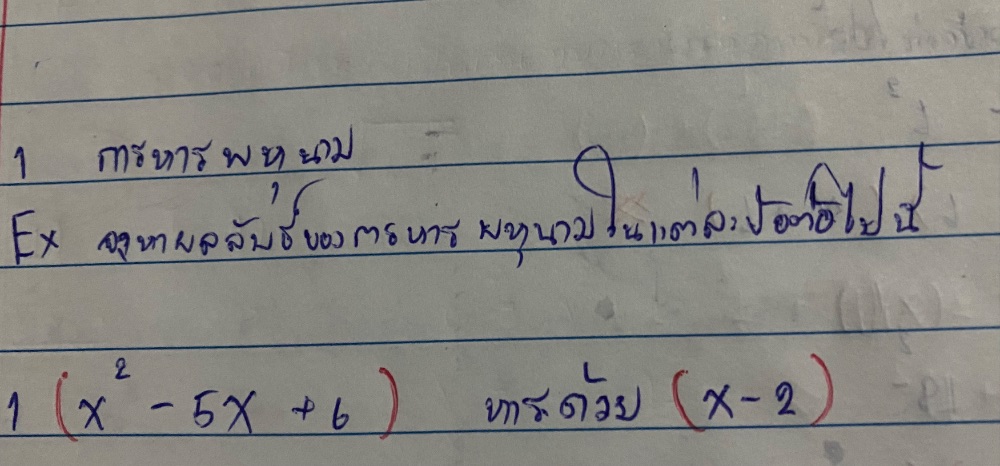 1 การหารพหุนาม
Ex จงหาผลลัพธ์ของการหารพหุนามในแต่ละข้อต่อไปนี้
1 (x² - 5x + 6) หารด้วย (x - 2)